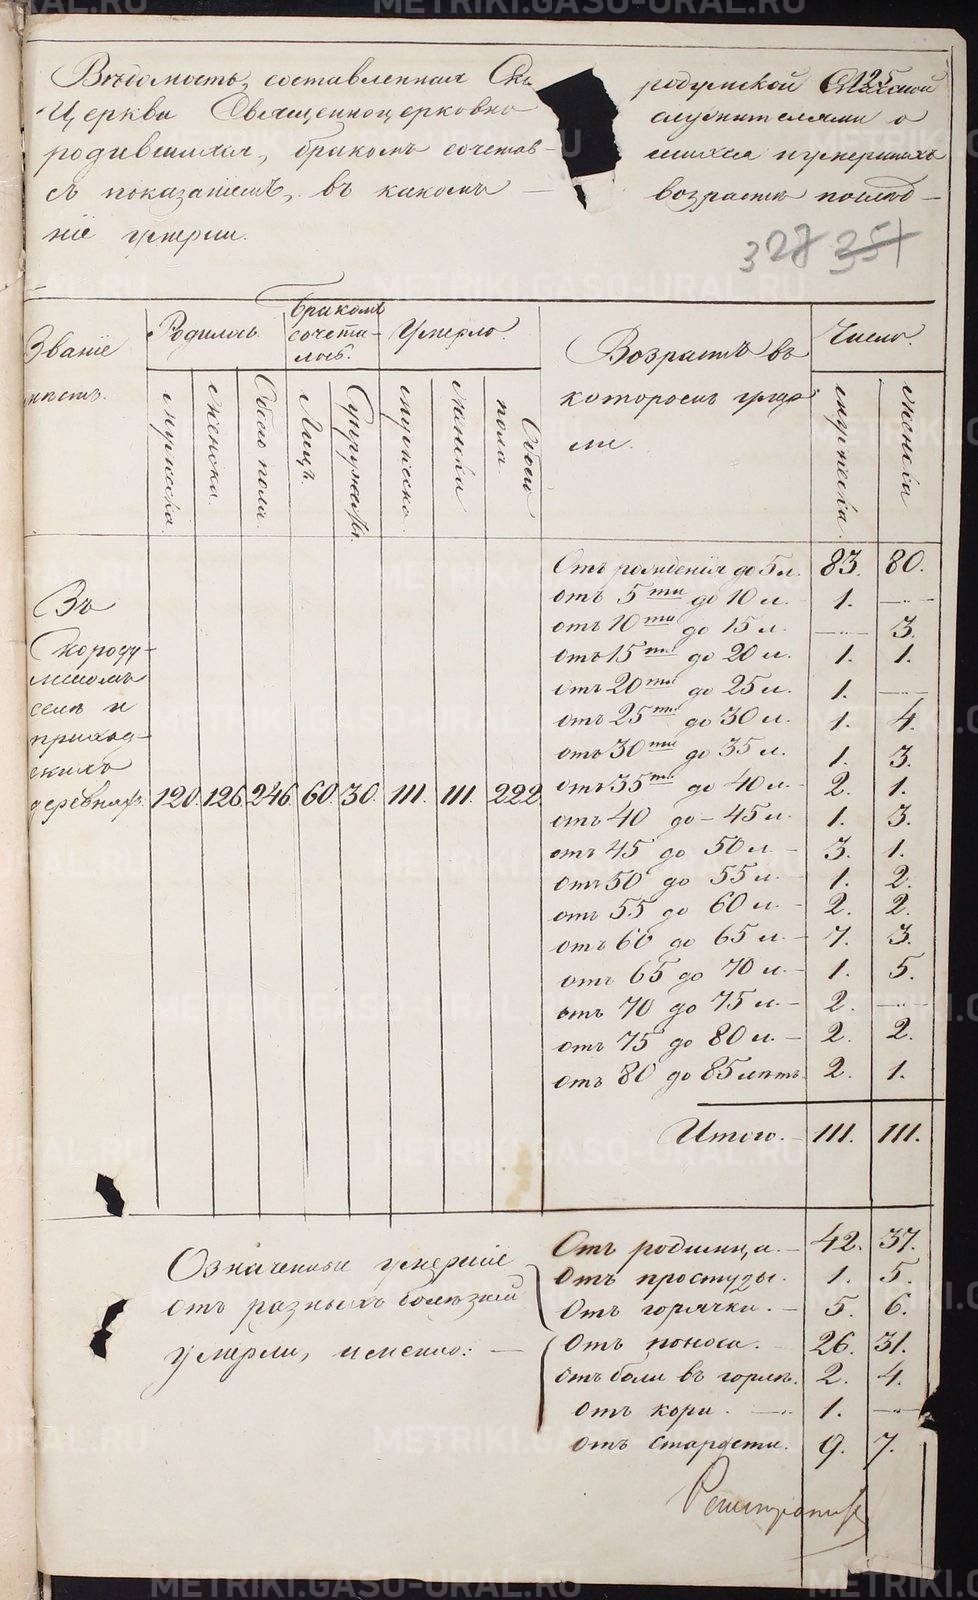 METRIKI.GASO-URAL.RU
Вѣдомость, составленная Ско родумской Спасской
125
Церкви Священноцерковно служителями о
родившихся, бракомъ сочетав- шихся и умершихъ
съ показаніемъ, въ какомъ возрастѣ послѣд-
ніе умерли.
327 351
Званіе мѣстъ.
Родилось.
Бракомъ сочета- лось.
Умерло.
Возрастъ въ которомъ умер ли.
Число.
мужеска.
женска.
Обоего пола.
Лицъ.
Супружествъ.
мужеска.
женска
Обоего пола
мужеска.
женска
Въ
Скороду-
мскомъ
селѣ и
приход-
скихъ
деревняхъ. 120. 126. 246. 60. 30. 111. 111. 222.
Отъ рожденія до 5 л. 83. 80.
отъ 5ти до 10 л. - 1. —
отъ 10ти до 15 л. — 3.
отъ 15ти до 20 л. 1. 1.
отъ 20ти до 25 л. 1. —
отъ 25ти до 30 л. 1. 4.
отъ 30ти до 35 л. 1. 3.
отъ 35ти до 40 л. - 2. 1.
отъ 40 до - 45 л. 1. 3.
отъ 45 до 50 л. - 3. 1.
отъ 50 до 55 л. - 1. 2.
отъ 55 до 60 л. - 2. 2.
отъ 60 до 65 л. - 7. 3.
отъ 65 до 70 л. - 1. 5.
отъ 70 до 75 л. - 2. —
отъ 75 до 80 л. - 2. 2.
отъ 80 до 85 лѣтъ. 2. 1.
Итого. - 111. 111.
Означенные умершіе
отъ разныхъ болѣзней
умерли, именно: —
Отъ родимца. - 42. 37.
Отъ простуды. 1. 5.
Отъ горячки. - 5. 6.
Отъ поноса. 26. 31.
Отъ боли въ горлѣ. 2. 4.
Отъ кори. — 1. —
Отъ старости. 9. 7.